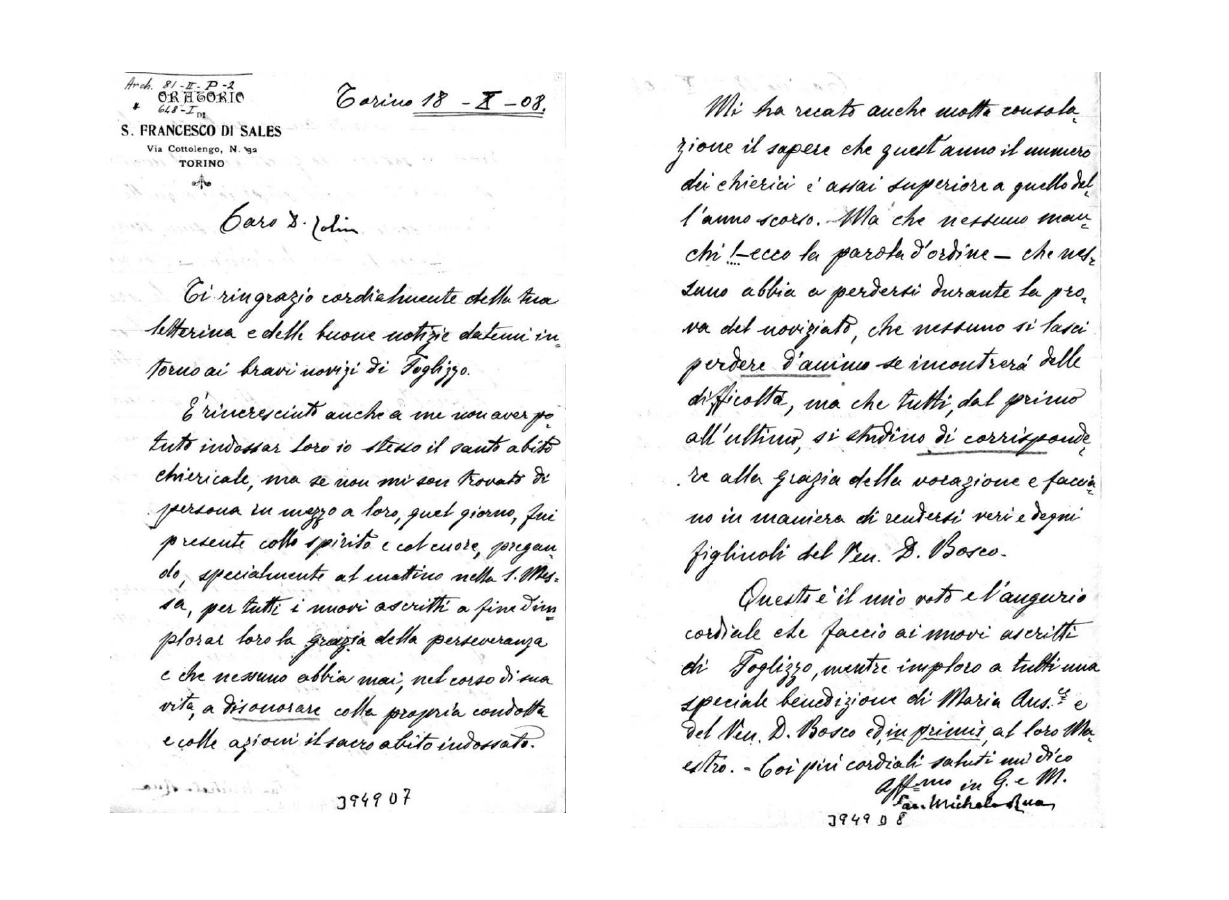 Arch. 81-II-P-2
ORATORIO
648-I DI
S. FRANCESCO DI SALES
Via Cottolengo, N. 32
TORINO
Torino 18 - X - 08.
Caro D. Zolin
Ti ringrazio cordialmente della tua
letterina e delle buone notizie datemi in=
torno ai bravi novizi di Foglizzo.
È rincresciuto anche a me non aver po=
tuto indossar loro io stesso il santo abito
chiericale, ma se non mi son trovato di
persona in mezzo a loro, quel giorno, fui
presente collo spirito e col cuore, pregan=
do, specialmente al mattino nella S. Mes=
sa, per tutti i nuovi ascritti a fine d'im=
plorar loro la grazia della perseveranza
e che nessuno abbia mai, nel corso di sua
vita, a disonorare colla propria condotta
e colle azioni il sacro abito indossato.
394907
Mi ha recato anche molta consola=
zione il sapere che quest'anno il numero
dei chierici é assai superiore a quello del=
l'anno scorso. Ma che nessuno man=
chi! - ecco la parola d'ordine - che nes=
suno abbia a perdersi durante la pro=
va del noviziato, che nessuno si lasci
perdere d'animo se incontrerá delle
difficoltà, ma che tutti, dal primo
all'ultimo, si studino di corrisponde=
re alla grazia della vocazione e faccia=
no in maniera di rendersi veri e degni
figliuoli del Ven. D. Bosco.
Questo é il mio voto e l'augurio
cordiale che faccio ai nuovi ascritti
di Foglizzo, mentre imploro a tutti una
speciale benedizione di Maria Aus.ce e
del Ven. D. Bosco ed, in primis, al loro Ma=
estro. - Coi più cordiali saluti mi dico
Aff.mo in G. e M.
Sac. Michele Rua
394908